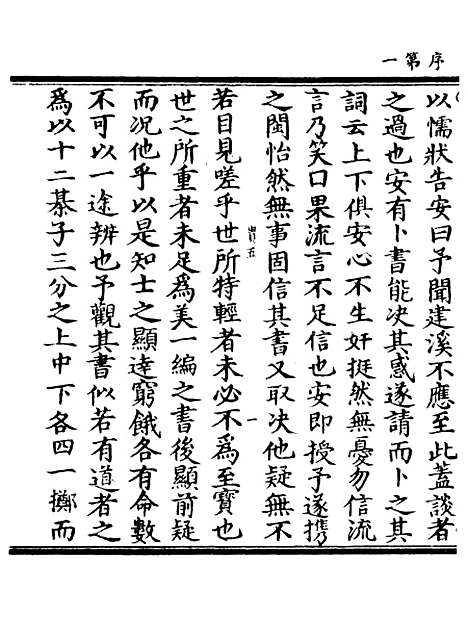 序第一
以懦狀告安曰予聞建溪不應至此蓋談者
之過也安有卜書能决其惑遂請而卜之其
詞云上下俱安心不生奸挺然無憂勿信流
言乃笑口果流言不足信也安即授予遂携
之閩怡然無事固信其書又取决他疑無不
貲五
一
若目見嗟乎世所特輕者未必不為至寳也
世之所重者未足為美一編之書後顯前疑
而况他乎以是知士之顯達窮餓各有命數
不可以一途辨也予觀其書似若有道者之
為以十二棊子三分之上中下各四一擲而